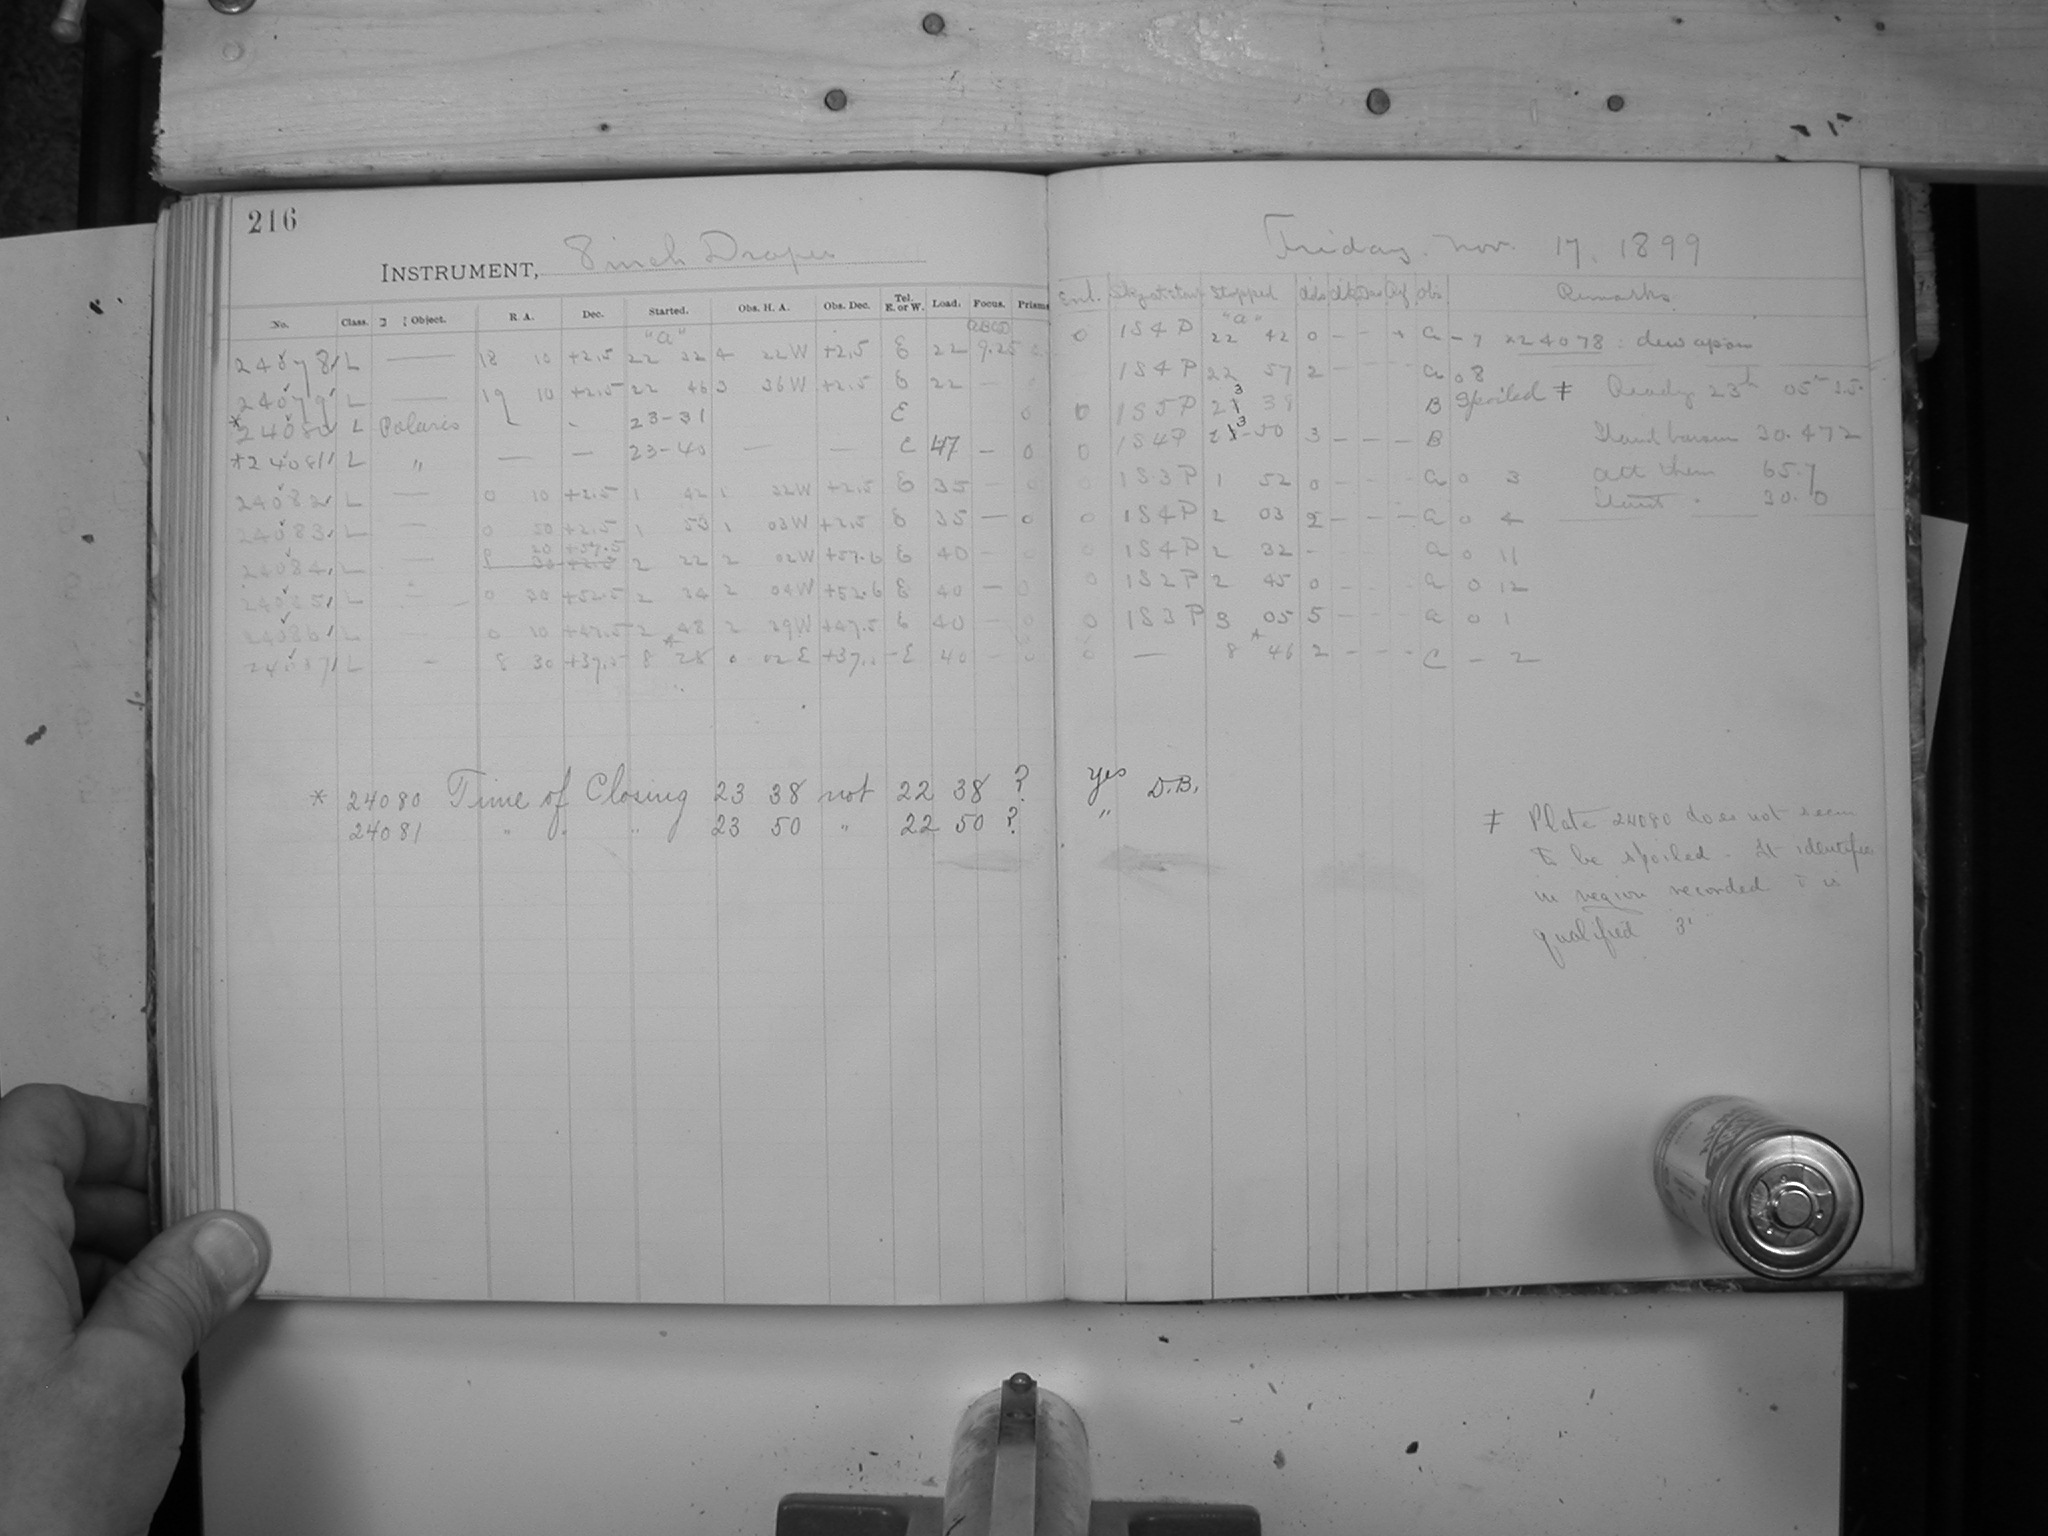 216
INSTRUMENT, 8 inch Draper
Friday. Nov. 17. 1899
No. Class. Object. R. A. Dec. Started. Obs. H. A. Obs. Dec. Tel. E. or W. Load. Focus. Prisms
Stopped Obs Remarks
"a" ABCD "a"
24078 L — 18 10 +2.5 22 32 4 22W +2.5 E 22 9.25 0 1S4P 22 42 0 - a - 7 *24078: dew upon
24079 L — 19 10 +2.5 22 46 3 36W +2.5 E 22 — 1S4P 22 57 2 - - - a 0 8
* 24080 L Polaris 23-31 E 0 0 1S5P 23 38 B Spoiled ‡ Ready 23h 05m
* 24081 L " — — 23-40 — — E 47 — 0 0 1S4P 23-50 3 - - - B Stand barom 30.472
24082 L — 0 10 +2.5 1 42 1 32W +2.5 E 35 — 1S3P 1 52 0 - - - a 0 3 att them 65.7
24083 L — 0 50 +2.5 1 53 1 03W +2.5 E 35 — 0 0 1S4P 2 03 2 - - - a 0 4 30.0
24084 L — 20 +57.5 2 22 2 02W +57.6 E 40 - 0 0 1S4P 2 32 - a 0 11
24085 L 0 30 +52.5 2 34 2 04W +52.6 E 40 — 0 0 1S2P 2 45 0 - - - a 0 12
24086 L — 0 10 +47.5 2 48 2 39W +47.5 E 40 — 0 0 1S3P 3 05 5 - a 0 1
24087 L - 8 30 +37.5 8 28 0 02 E +37. E 40 - 0 0 — 8 46 2 - - - C - 2
* 24080 Time of Closing 23 38 not 22 38 ? yes D.B.
24081 " " " 23 50 " 22 50 ? "
‡ Plate 24080 does not seem
to be spoiled. It identifies
in region recorded & is
qualified 3'